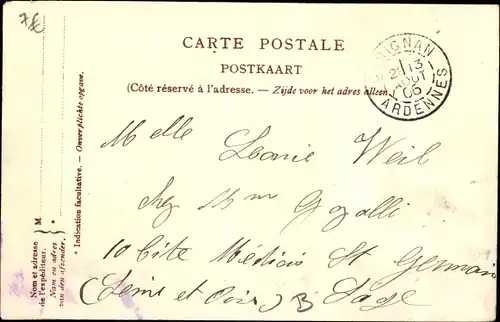 7€
CARTE POSTALE
POSTKAART
(Côté réservé à l'adresse. — Zijde voor het adres alleen.
CARIGNAN
21 13
AOUT
06
ARDENNES
Melle Léonie Weil
chez Mme Gozalli
10 Cité Médicis St Germain
(Seine et Oise) B
Nom et adresse
de l'expéditeur.
Nom en adres
van den afzender.
M
*
* Indication facultative. — Onverplichte opgave.